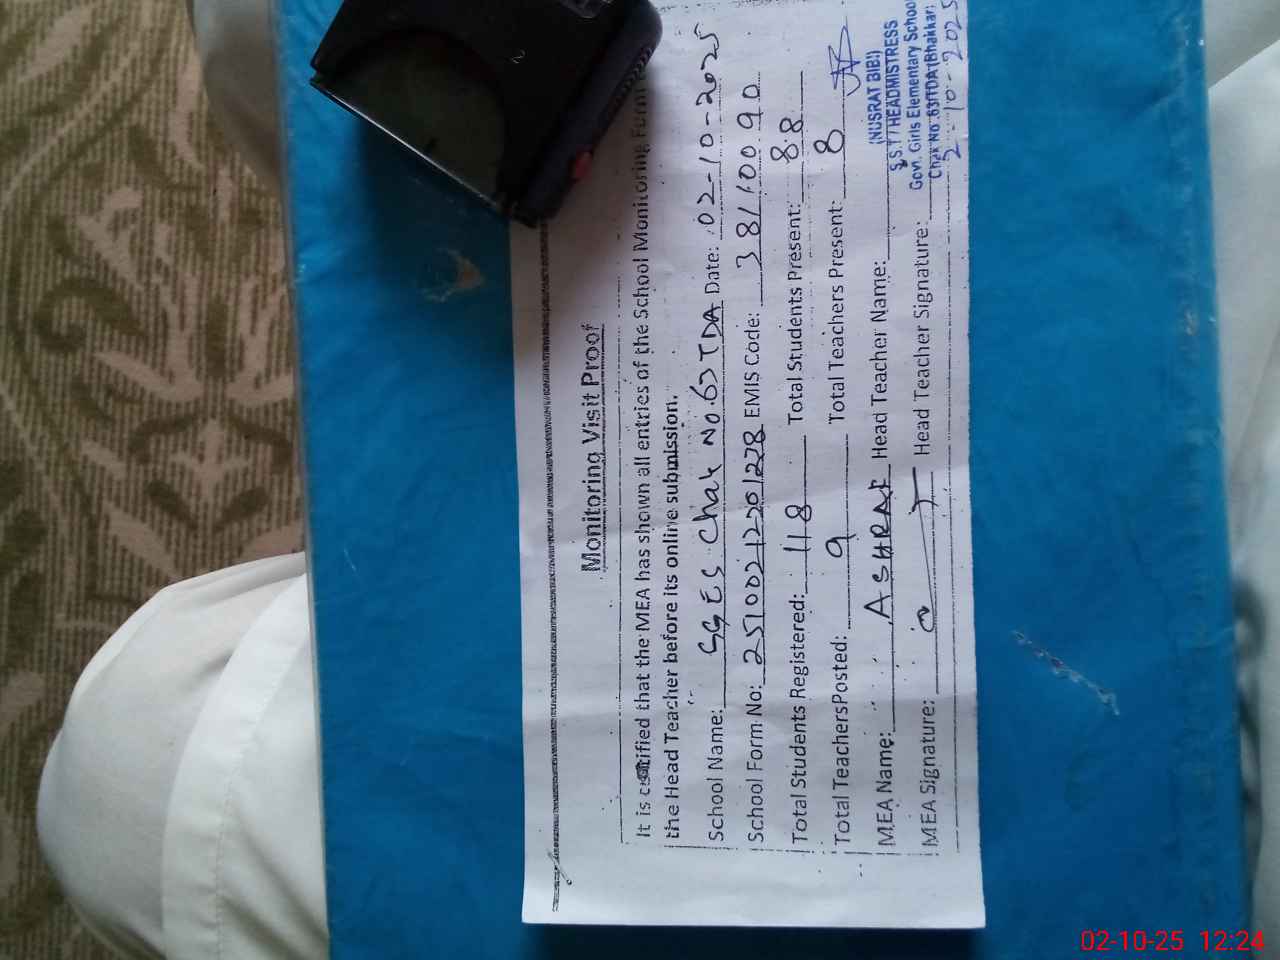 Monitoring Visit Proof
It is certified that the MEA has shown all entries of the School Monitoring Form
the Head Teacher before its online submission.
School Name: GGES Chak No.63 TDA Date: 02-10-2025
School Form No: 25100212201228 EMIS Code: 38110090
Total Students Registered: 118 Total Students Present: 88
Total TeachersPosted: 9 Total Teachers Present: 8
MEA Name: ASHRAF Head Teacher Name: (NUSRAT BIBI)
S.S.T / HEADMISTRESS
Govt. Girls Elementary School
Chak No. 63/TDA (Bhakkar)
MEA Signature: Head Teacher Signature: 2-10-2025
02-10-25 12:24